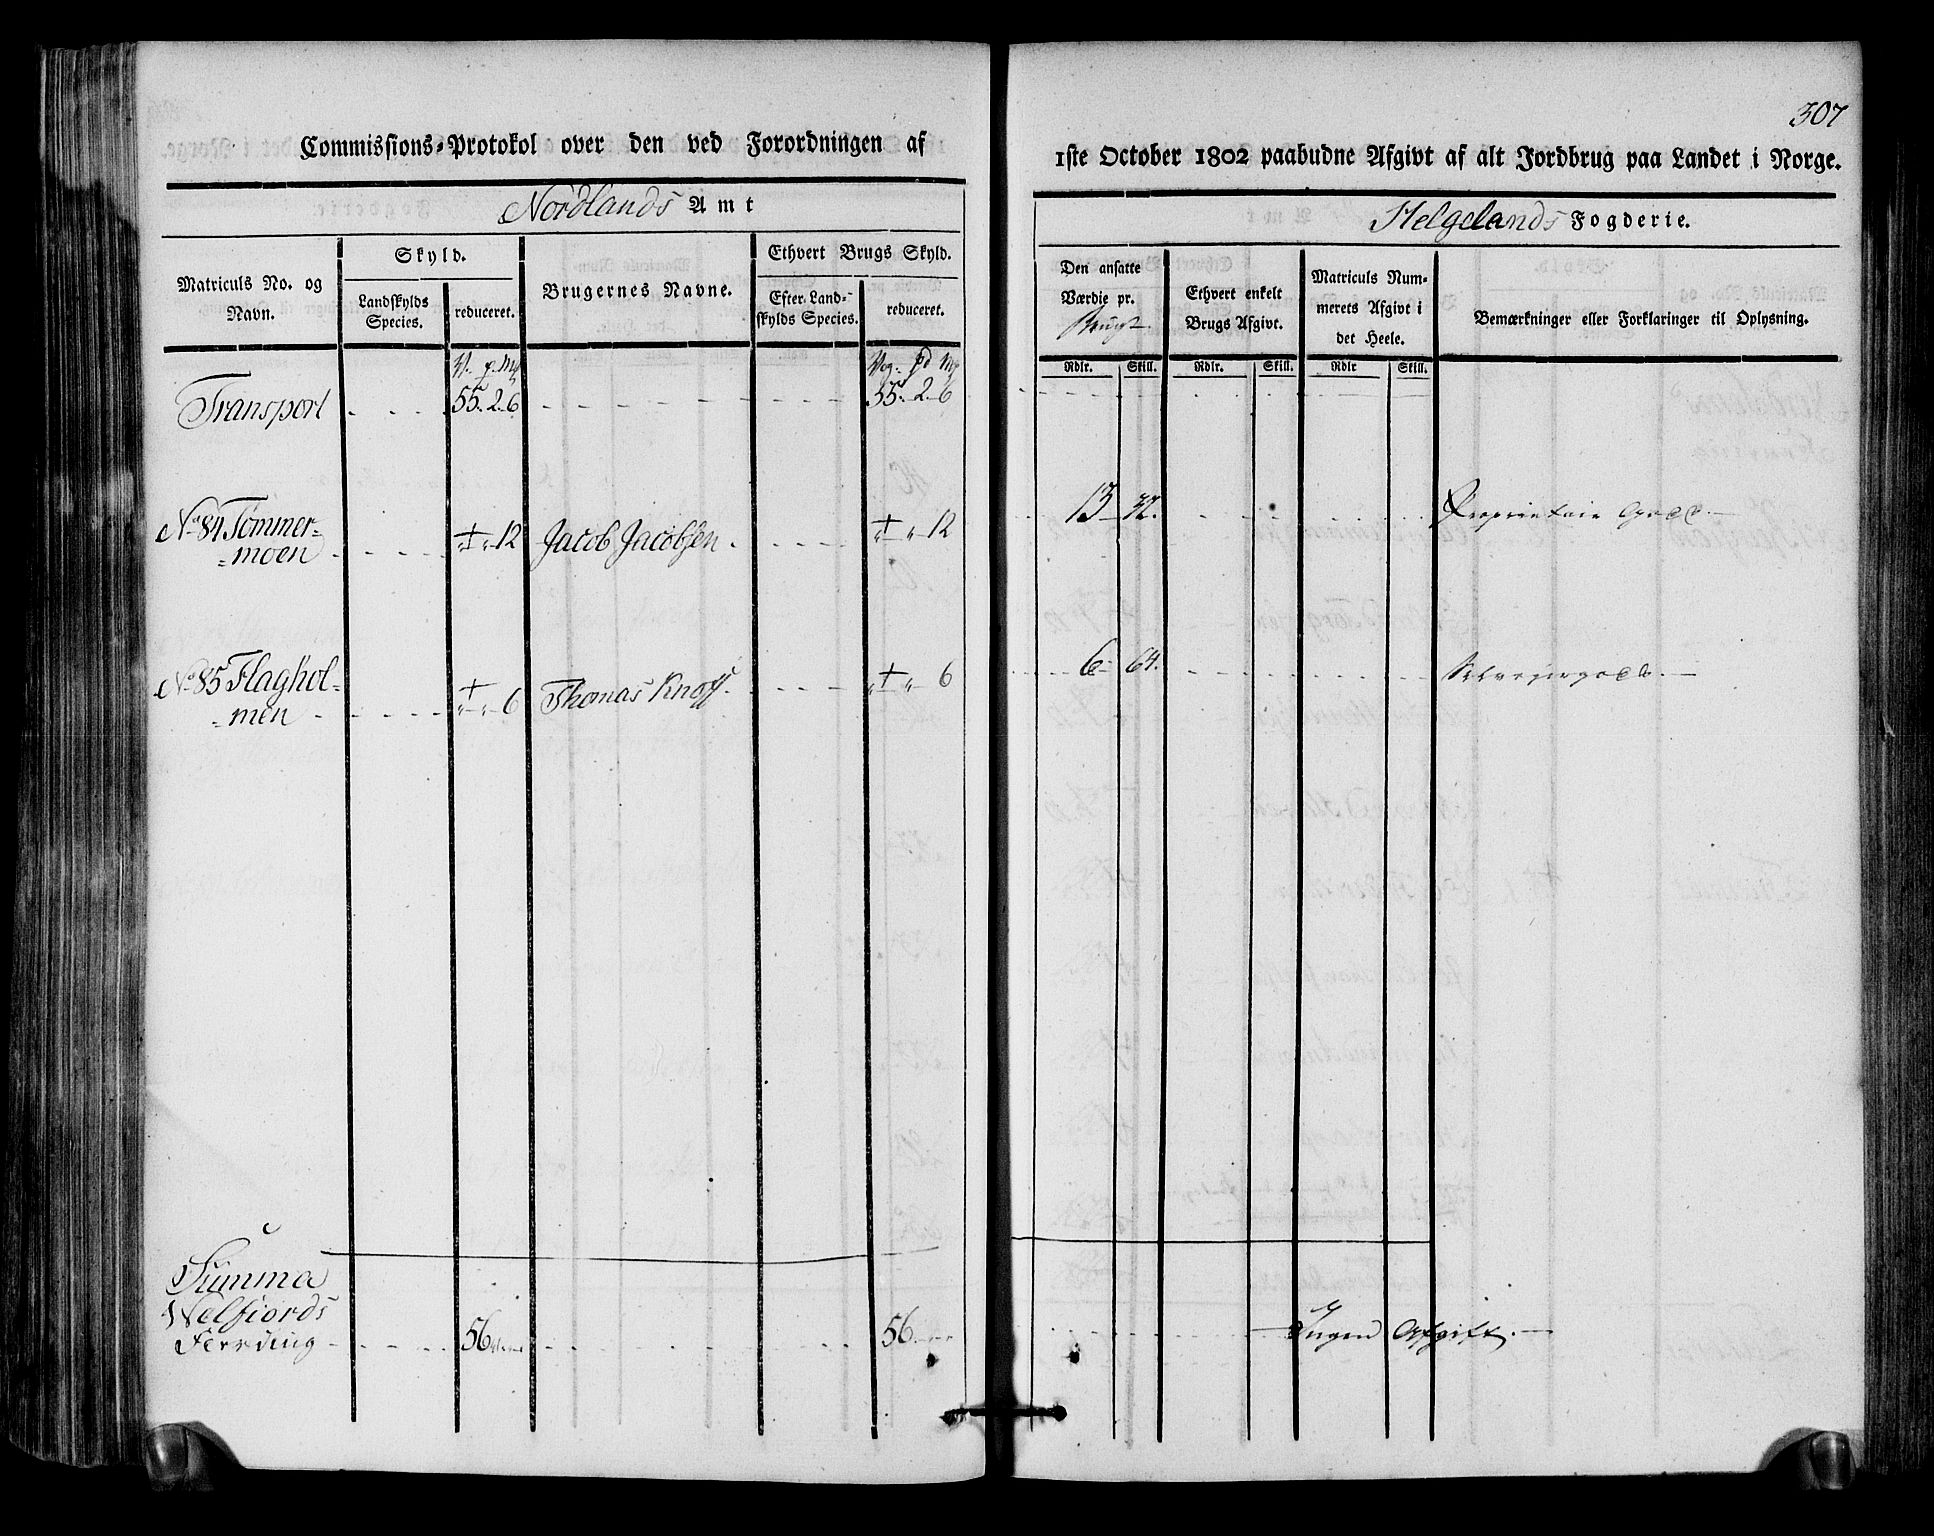 307
Commissions-Protokol over den ved Forordningen af
1ste October 1802 paabudne Afgivt af alt Jordbrug paa Landet i Norge.
Nordlands Amt
Helgelands Fogderie.
Matriculs No. og Navn.
Skyld.
Landskylds Species.
reduceret.
Brugernes Navne.
Ethvert Brugs Skyld.
Efter Landskylds Species.
reduceret.
Den ansatte Værdie pr.
Ethvert enkelt Brugs Afgivt.
Matriculs Nummerets Afgivt i det Heele.
Bemærkninger eller Forklaringer til Oplysning.
Rdlr. Skill. Rdlr. Skill. Rdlr Skill.
V. p. Mk
Vog. pd Mk
Transport 55. 2. 6 55. 2. 6
No 84 Tømmer=
=moen 12 Jacob Jacobsen 12 13 32. Proprietair Godz.
No 85 Flaghol=
=men 6 Thomas Knoff. 6 6 64. Selveiergodz.
Summa
Velfiords
Ferrding 56 56 Ingen Afgift.